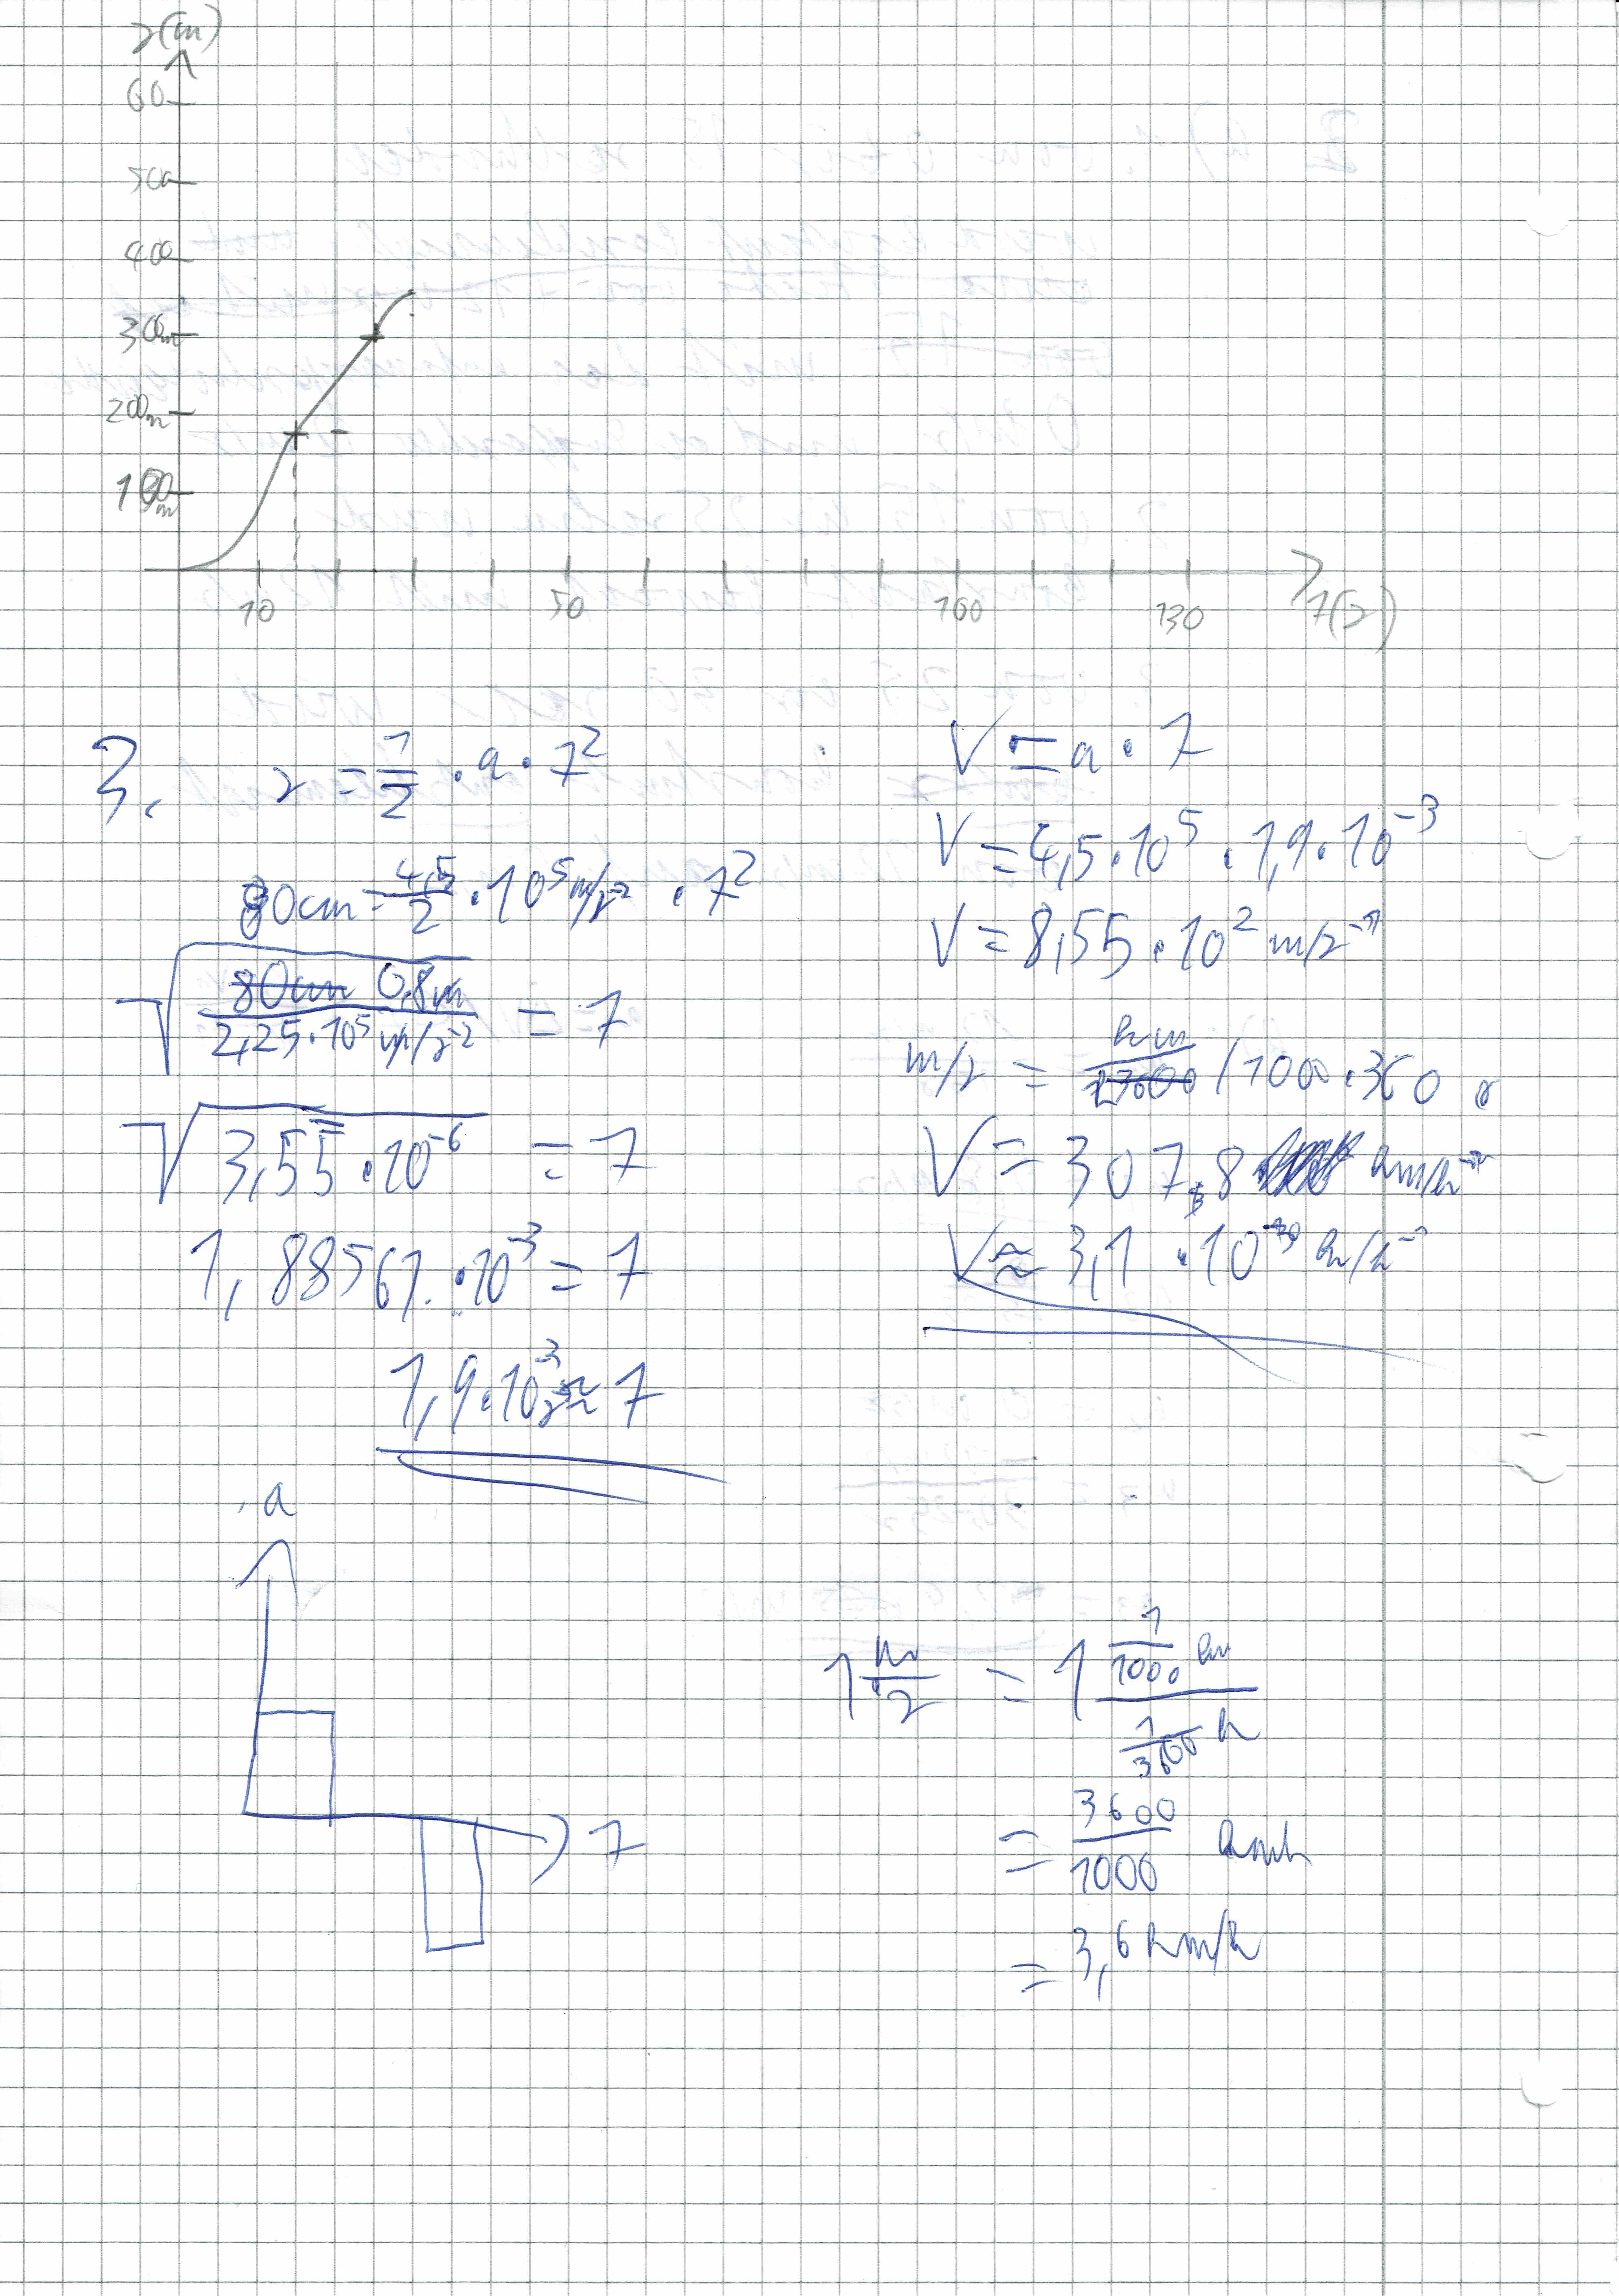 s(m)
60
500
400
300m
200m
100m
10 50 100 130 t(s)
3. s = 1/2 · a · t²
80cm = 4,5/2 · 10⁵ m/s⁻² · t²
√(80cm 0,8m / 2,25 · 10⁵ m/s⁻²) = t
√(3,55 · 10⁻⁶) = t
1,88561 · 10⁻³ = t
1,9 · 10⁻³ s ≈ t
V = a · t
V = 4,5 · 10⁵ · 1,9 · 10⁻³
V = 8,55 · 10² m/s⁻¹
m/s = km / 1000 · 360
V = 307,8 km/h
V ≈ 3,1 · 10 km/h⁻¹
a
t
1 m/s = 1 (1/1000 km) / (1/3600 h)
= 3600/1000 kmh
= 3,6 km/h